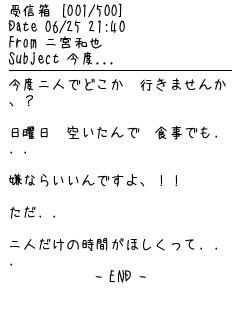 受信箱 [001/500]
Date 06/25 21:40
From 二宮和也
Subject 今度...
今度二人でどこか　行きませんか
、？
日曜日　空いたんで　食事でも．
．．
嫌ならいいんですよ、！！
ただ．．
二人だけの時間がほしくって．．
．
- END -